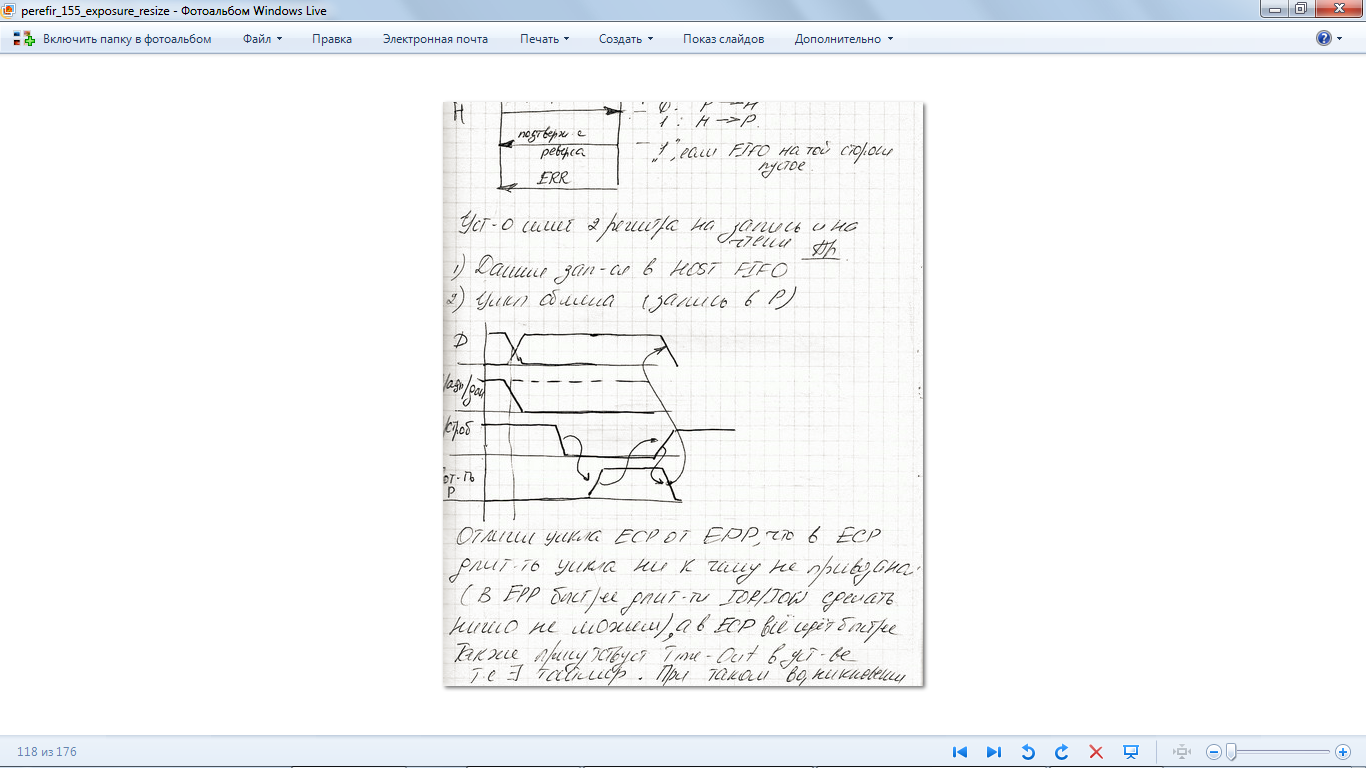 perefir_155_exposure_resize - Фотоальбом Windows Live
Включить папку в фотоальбом Файл Правка Электронная почта Печать Создать Показ слайдов Дополнительно
Н
0: P → H
1: H → P.
подтверж с
реверса
"1", если FIFO на той стороне
пустое
ERR
Уст-о имеет 2 регистра на запись и на
чтение
1) Данные зап-ся в HOST FIFO
2) Цикл обмена (запись в P)
D
строб
P
Отличие цикла ECP от EPP, что в ECP
длит-ть цикла ни к чему не привязана.
(В EPP быстрее длит-ти IOR/IOW сделать
ничо не можем), а в ECP всё идёт быстрее
Также присутствует Time-Out в уст-ве
т.е ∃ таймер. При таком возникновении
118 из 176